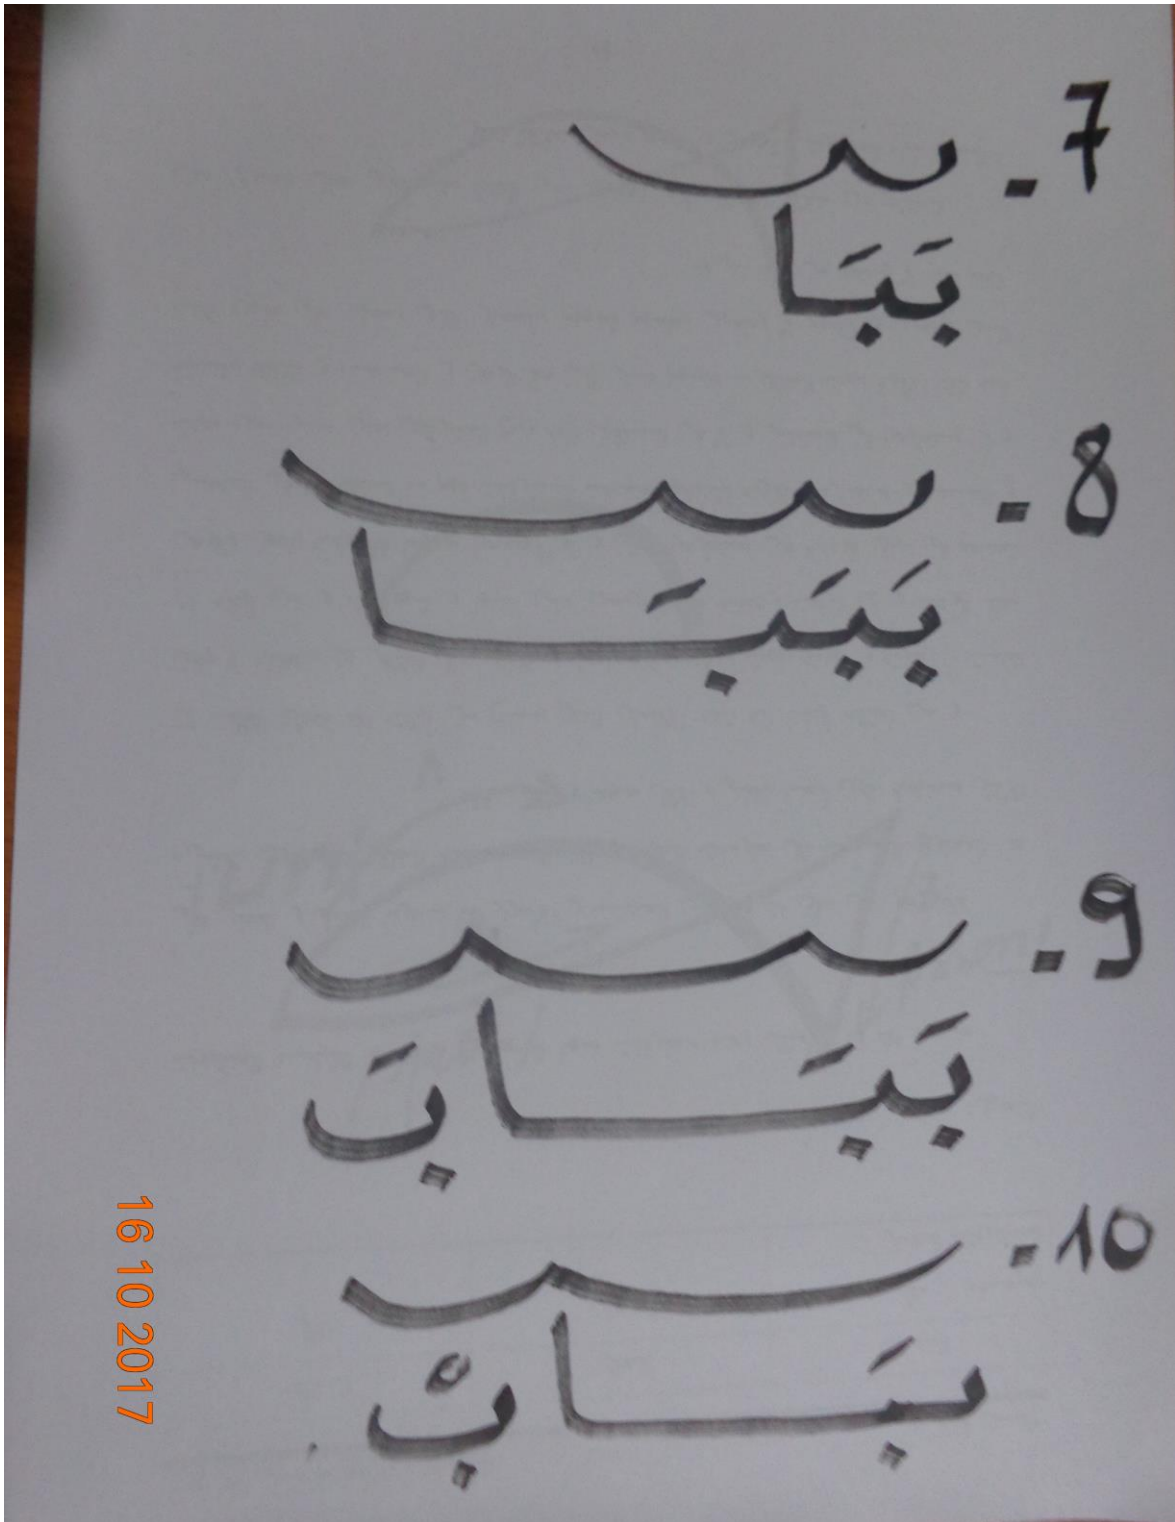 7.
بَبَا
8.
بَبَبَا
9.
بَبَابَ
10.
بَابْ
16 10 2017